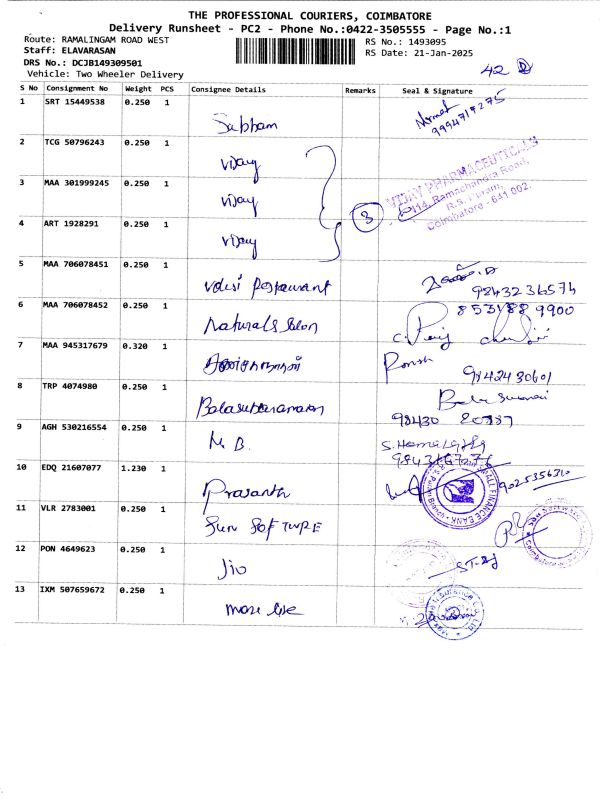 THE PROFESSIONAL COURIERS, COIMBATORE
Delivery Runsheet - PC2 - Phone No.:0422-3505555 - Page No.:1
Route: RAMALINGAM ROAD WEST
RS No.: 1493095
Staff: ELAVARASAN
RS Date: 21-Jan-2025
DRS No.: DCJB149309501
Vehicle: Two Wheeler Delivery
42
S No Consignment No Weight PCS Consignee Details Remarks Seal & Signature
1 SRT 15449538 0.250 1 Subham
2 TCG 50796243 0.250 1 Vijay
3 MAA 301999245 0.250 1 Vijay
VIJAY PHARMACEUTICALS
114, Ramachandra Road,
R.S. Puram,
Coimbatore - 641 002.
3
4 ART 1928291 0.250 1 Vijay
5 MAA 706078451 0.250 1 Restaurant
9843236574
6 MAA 706078452 0.250 1 Naturals Salon
7 MAA 945317679 0.320 1
9842430601
8 TRP 4074980 0.250 1 Balasubramanian
9 AGH 530216554 0.250 1 M. B.
10 EDQ 21607077 1.230 1 Prasanth
9025356310
11 VLR 2783001 0.250 1 Sun SOFTWRE
12 PON 4649623 0.250 1 Jio
13 IXM 507659672 0.250 1